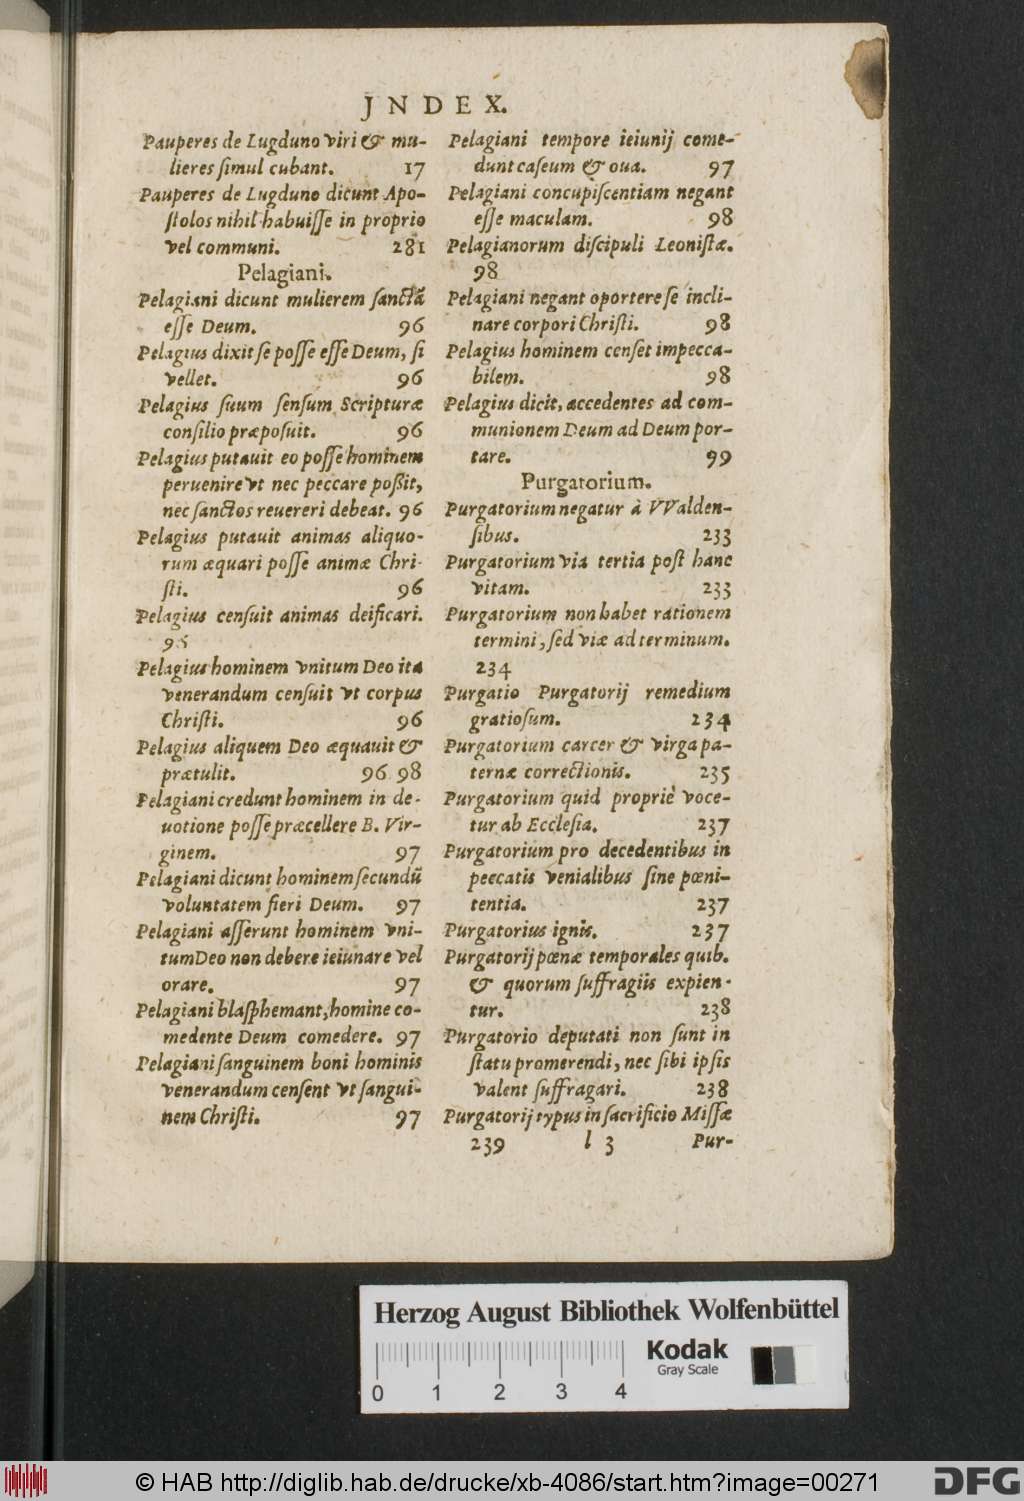 JNDEX.
Pauperes de Lugduno viri & mu-
lieres ſimul cubant. 17
Pauperes de Lugduno dicunt Apo-
ſtolos nihil habuiſſe in proprio
vel communi. 281
Pelagiani.
Pelagiani dicunt mulierem ſanctã
eſſe Deum. 96
Pelagius dixit ſe poſſe eſſe Deum, ſi
vellet. 96
Pelagius ſuum ſenſum Scripturæ
conſilio præpoſuit. 96
Pelagius putauit eo poſſe hominem
peruenire vt nec peccare poßit,
nec ſanctos reuereri debeat. 96
Pelagius putauit animas aliquo-
rum æquari poſſe animæ Chri-
ſti. 96
Pelagius cenſuit animas deificari.
96
Pelagius hominem vnitum Deo ita
venerandum cenſuit vt corpus
Chriſti. 96
Pelagius aliquem Deo æquauit &
prætulit. 96 98
Pelagiani credunt hominem in de-
uotione poſſe præcellere B. Vir-
ginem. 97
Pelagiani dicunt hominem ſecundũ
voluntatem fieri Deum. 97
Pelagiani aſſerunt hominem vni-
tum Deo non debere ieiunare vel
orare. 97
Pelagiani blaſphemant, homine co-
medente Deum comedere. 97
Pelagiani ſanguinem boni hominis
venerandum cenſent vt ſangui-
nem Chriſti. 97
Pelagiani tempore ieiunij come-
dunt caſeum & oua. 97
Pelagiani concupiſcentiam negant
eſſe maculam. 98
Pelagianorum diſcipuli Leoniſtæ.
98
Pelagiani negant oportere ſe incli-
nare corpori Chriſti. 98
Pelagius hominem cenſet impecca-
bilem. 98
Pelagius dicit, accedentes ad com-
munionem Deum ad Deum por-
tare. 99
Purgatorium.
Purgatorium negatur à VValden-
ſibus. 233
Purgatorium via tertia poſt hanc
vitam. 233
Purgatorium non habet rationem
termini, ſed viæ ad terminum.
234
Purgatio Purgatorij remedium
gratioſum. 234
Purgatorium carcer & virga pa-
ternæ correctionis. 235
Purgatorium quid propriè voce-
tur ab Eccleſia. 237
Purgatorium pro decedentibus in
peccatis venialibus ſine pœni-
tentia. 237
Purgatorius ignis. 237
Purgatorij pœnæ temporales quib.
& quorum ſuffragiis expien-
tur. 238
Purgatorio deputati non ſunt in
ſtatu promerendi, nec ſibi ipſis
valent ſuffragari. 238
Purgatorij typus in ſacrificio Miſſæ
239 l 3 Pur-
Herzog August Bibliothek Wolfenbüttel
Kodak
Gray Scale
0 1 2 3 4
© HAB http://diglib.hab.de/drucke/xb-4086/start.htm?image=00271
DFG